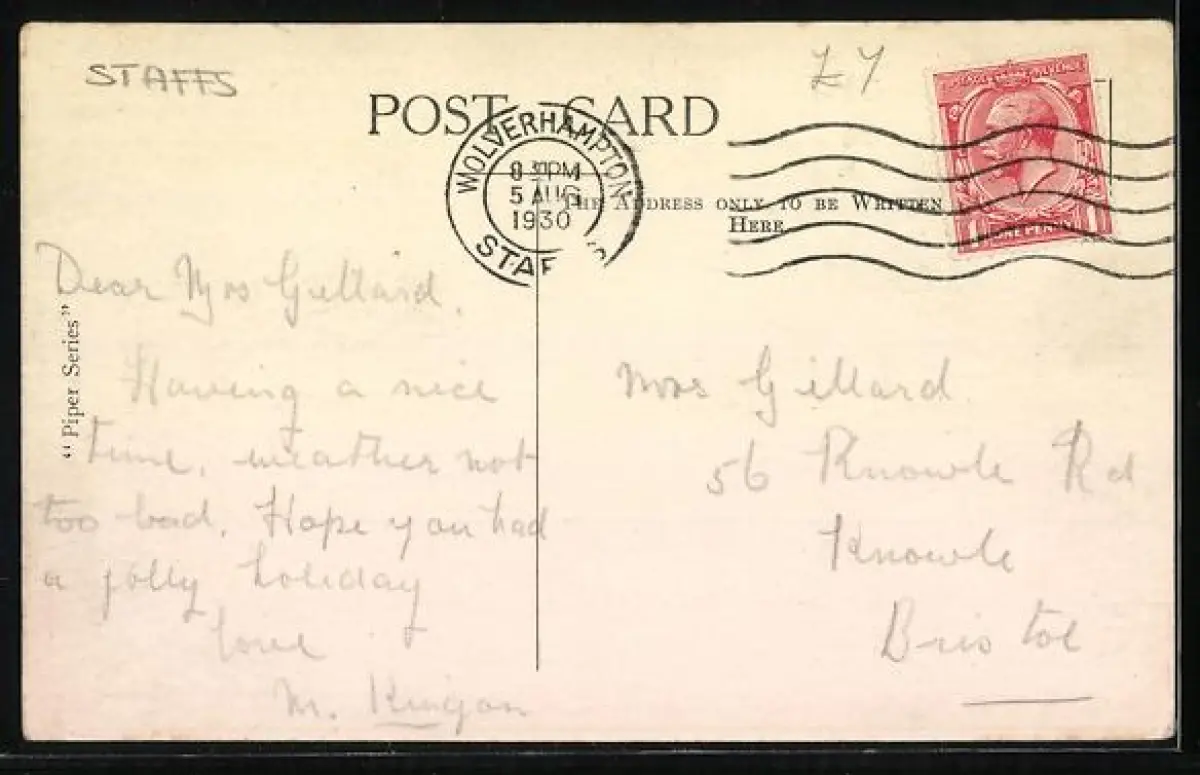 STAFFS
£7
POST CARD
WOLVERHAMPTON
PM
5 AUG
1930
STAFFS
THE ADDRESS ONLY TO BE WRITTEN
HERE
POSTAGE REVENUE
ONE PENNY
"Piper Series"
Dear Mrs Gillard.
Having a nice
time, weather not
too bad. Hope you had
a jolly holiday
love
M.
Mrs Gillard
56 Knowle Rd
Knowle
Bristol